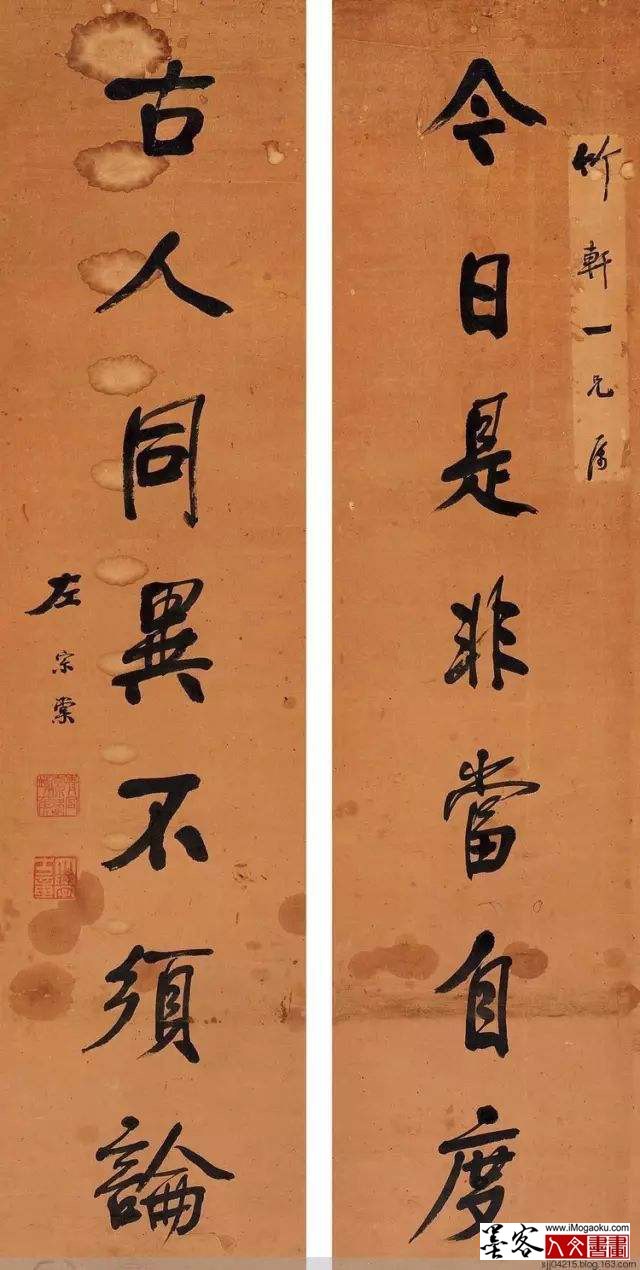 竹軒一兄屬
今日是非當自度
古人同異不須論
左宗棠
www.iMogaoku.com
墨客 人文書畫
xjj04215.blog.163.com